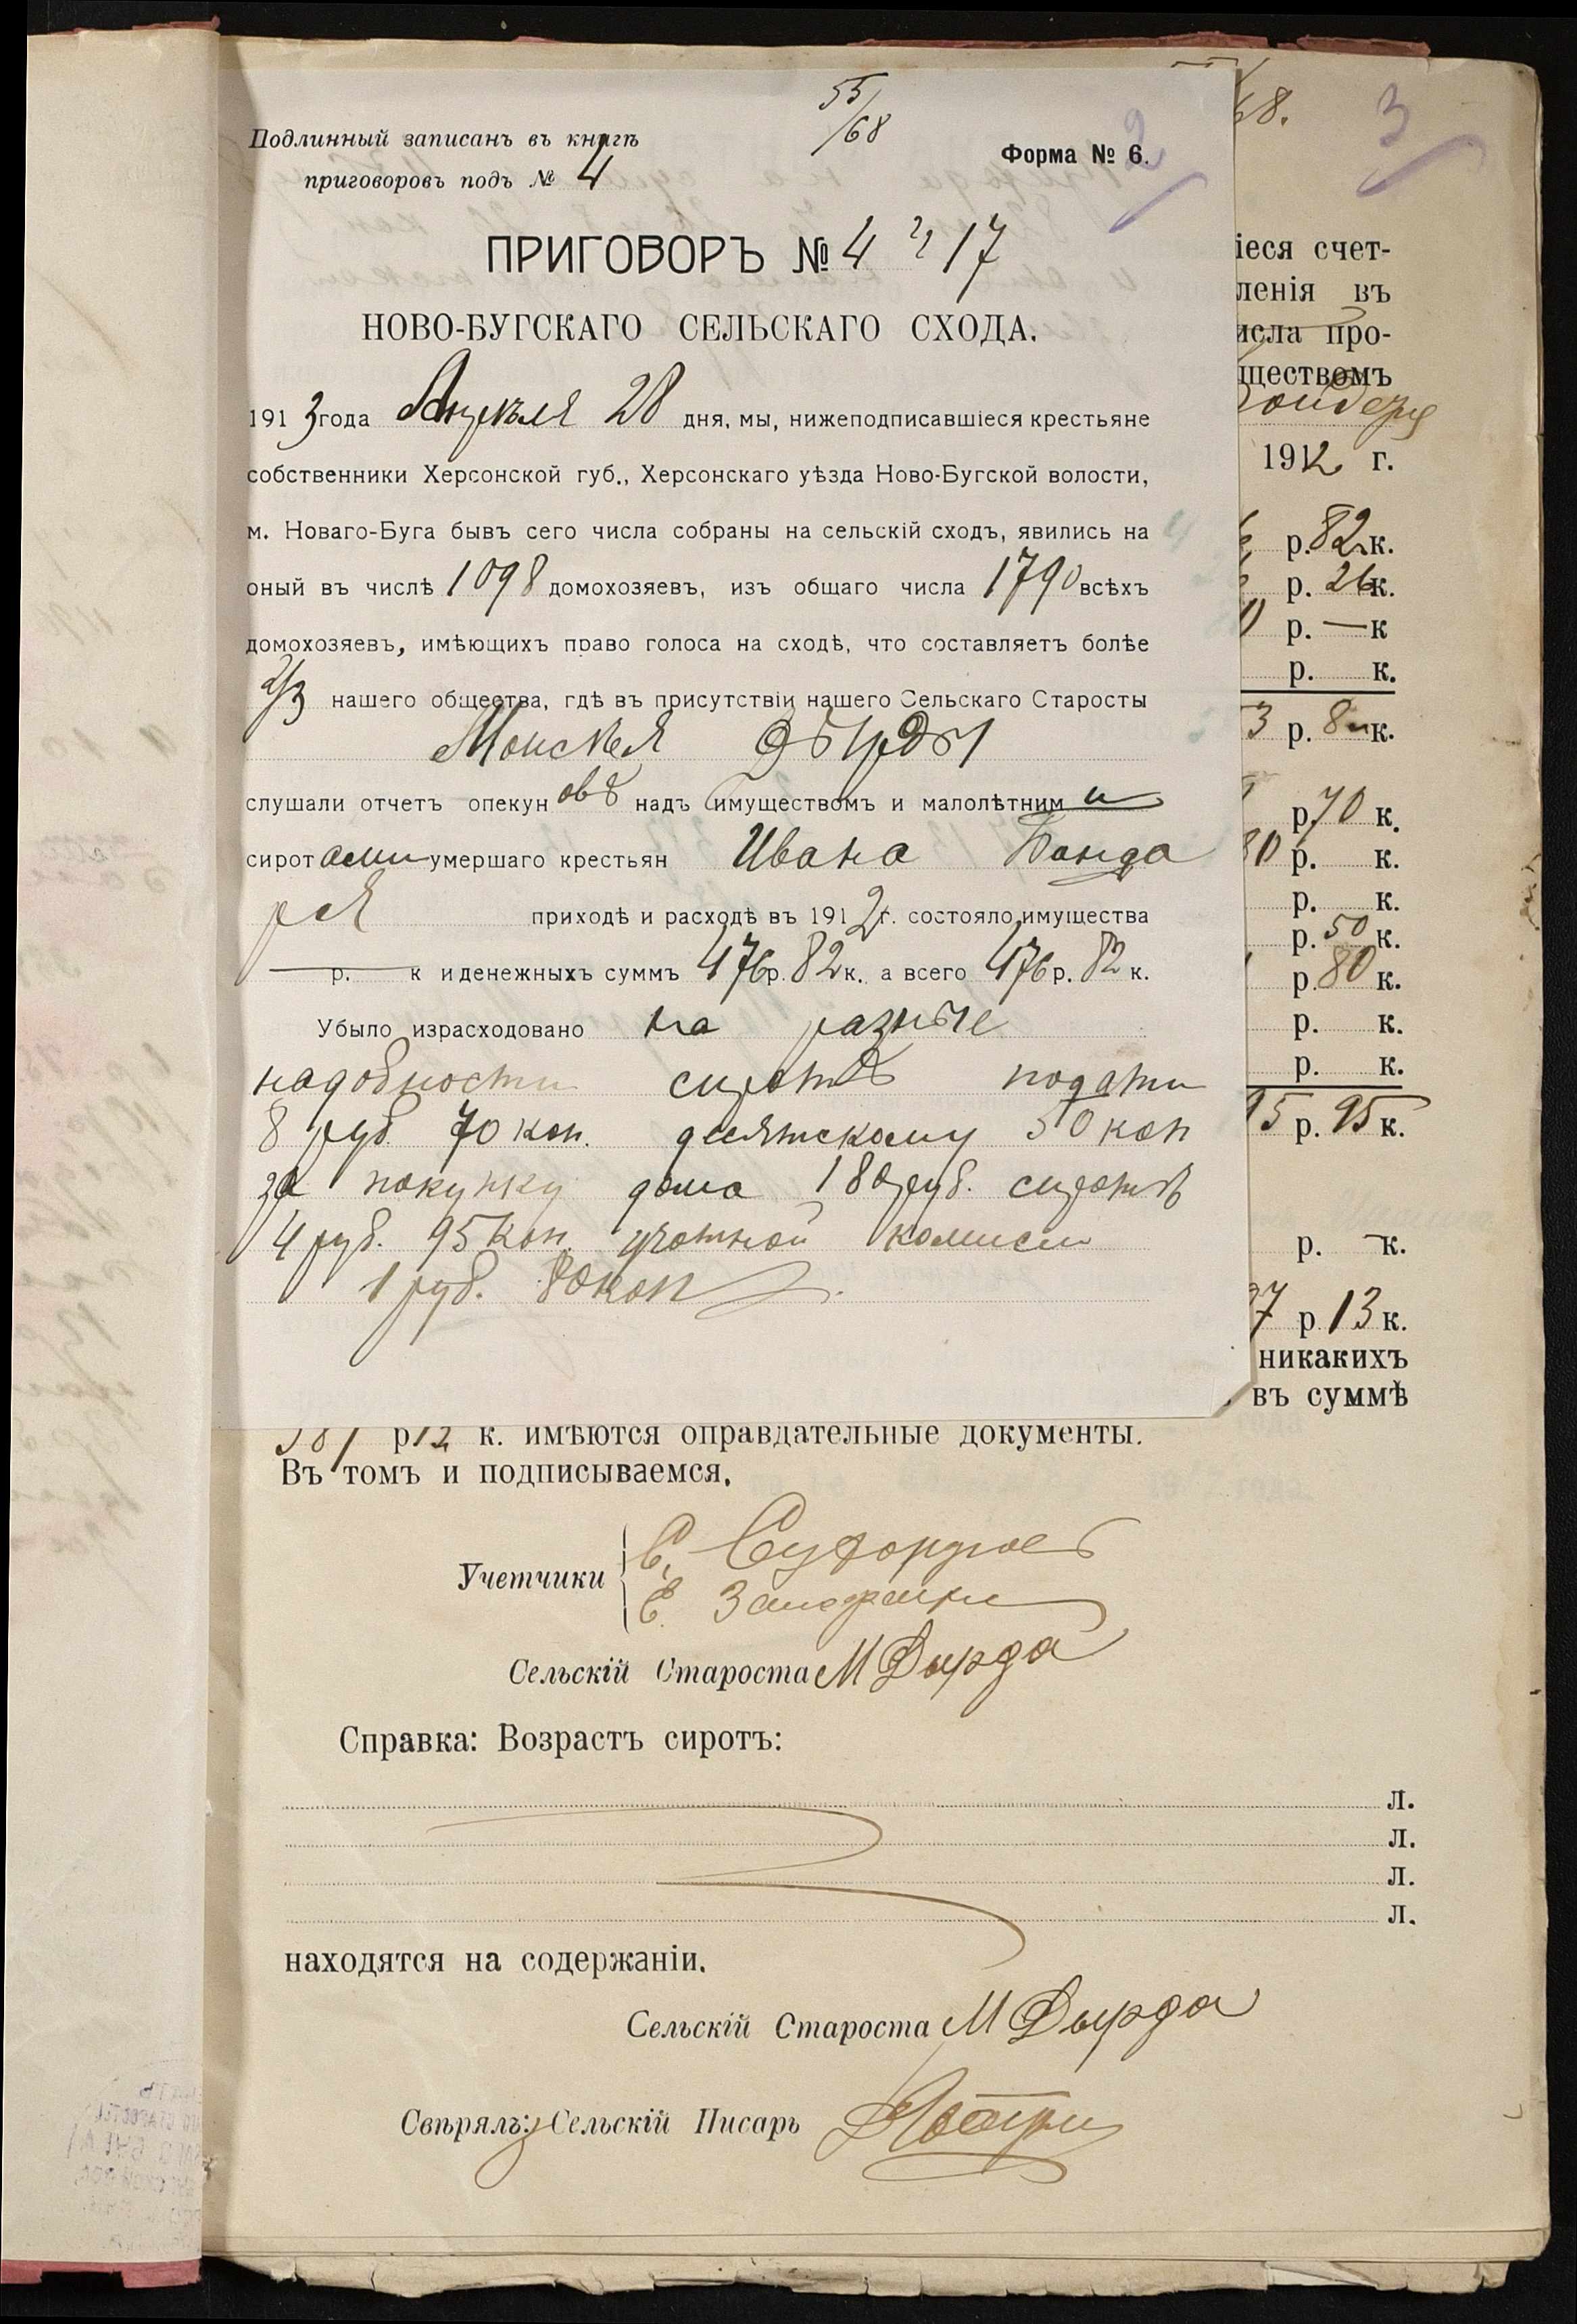 55/68
Подлинный записанъ въ книгѣ
приговоровъ подъ № 4
Форма № 6.
2
ПРИГОВОРЪ № 4 17
НОВО-БУГСКАГО СЕЛЬСКАГО СХОДА.
1913 года Апреля 28 дня, мы, нижеподписавшіеся крестьяне
собственники Херсонской губ., Херсонскаго уѣзда Ново-Бугской волости,
м. Новаго-Буга бывъ сего числа собраны на сельскій сходъ, явились на
оный въ числѣ 1098 домохозяевъ, изъ общаго числа 1790 всѣхъ
домохозяевъ, имѣющихъ право голоса на сходѣ, что составляетъ болѣе
2/3 нашего общества, гдѣ въ присутствіи нашего Сельскаго Старосты
Моисея Дырды
слушали отчетъ опекуновъ надъ имуществомъ и малолѣтними
сиротами умершаго крестьян Ивана Бонда
ря приходѣ и расходѣ въ 1912 г. состояло имущества
— р. — к и денежныхъ суммъ 476 р. 82 к. а всего 476 р. 82 к.
Убыло израсходовано на разные
надобности сиротъ подати
8 руб. 70 коп. десятскому 50 коп
за покупку дома 180 руб. сиротѣ
4 руб. 95 коп. учотной комисіи
1 руб. 80 коп.
68.
3
іеся счет-
ленія въ
исла про-
ществомъ
Бондаря
1912 г.
р. 82 к.
р. 26 к.
р. — к
р. к.
3 р. 8 к.
р 70 к.
80 р. к.
р. к.
р. 50 к.
р. 80 к.
р. к.
р. к.
95 р. 95 к.
р. к.
7 р. 13 к.
никакихъ
въ суммѣ
381 р 12 к. имѣются оправдательные документы.
Въ томъ и подписываемся.
Учетчики
С.
Е.
Сельскій Староста М Дырда
Справка: Возрастъ сиротъ:
л.
л.
л.
л.
находятся на содержаніи.
Сельскій Староста М Дырда
Свѣрялъ: Сельскій Писарь